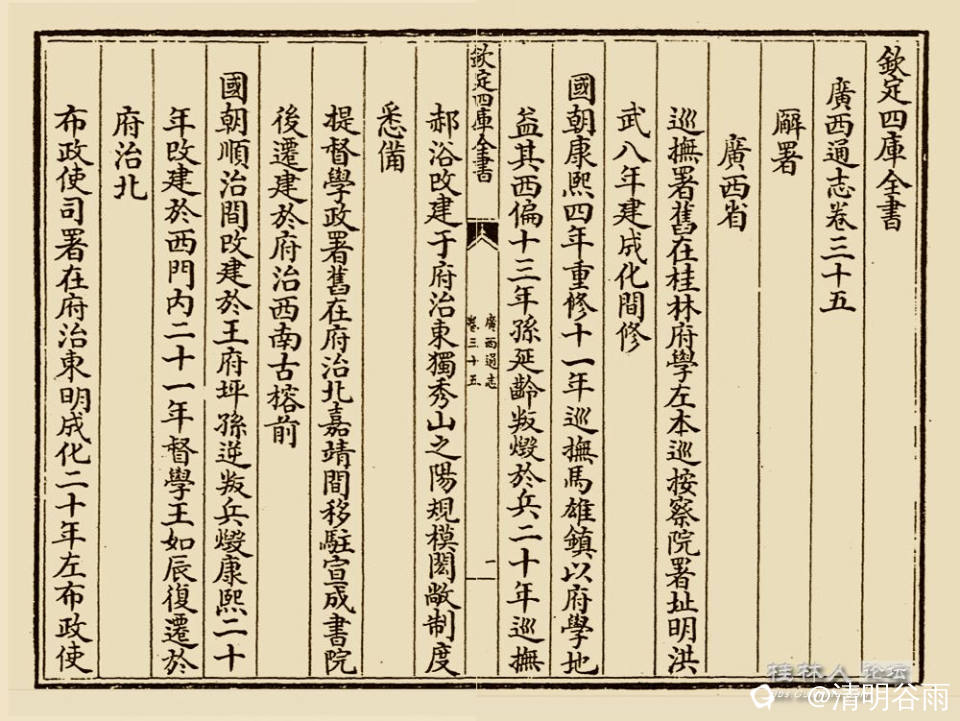 欽定四庫全書
廣西通志卷三十五
廨署
廣西省
巡撫署舊在桂林府學左本巡按察院署址明洪
武八年建成化間修
國朝康熙四年重修十一年巡撫馬雄鎮以府學地
益其西偏十三年孫延齡叛燬於兵二十年巡撫
欽定四庫全書
廣西通志
卷三十五
一
郝浴改建于府治東獨秀山之陽規模閎敞制度
悉備
提督學政署舊在府治北嘉靖間移駐宣成書院
後遷建於府治西南古榕前
國朝順治間改建於王府坪孫逆叛兵燬康熙二十
年改建於西門內二十一年督學王如辰復遷於
府治北
布政使司署在府治東明成化二十年左布政使
桂林人论坛
@清明谷雨